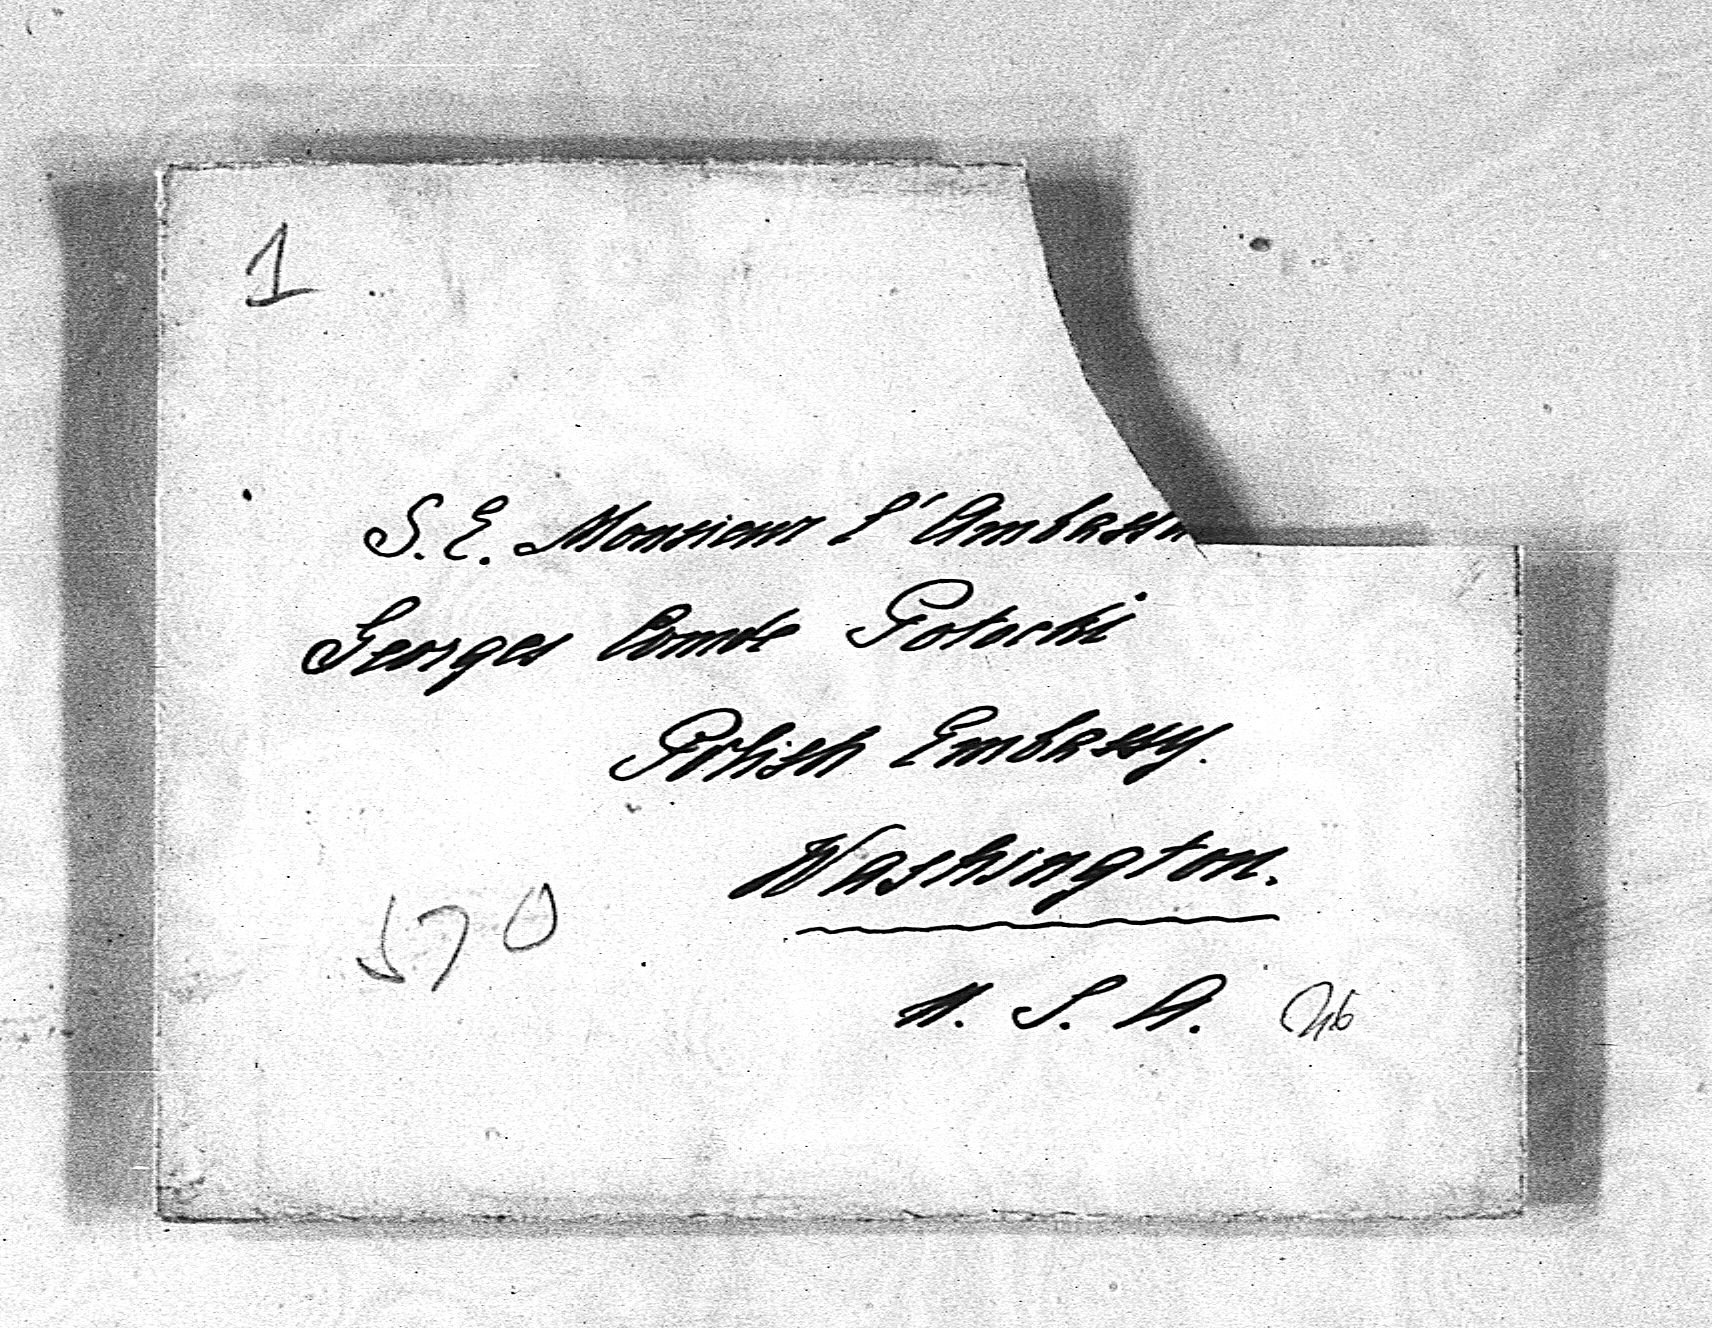 1
S. E. Monsieur l'Ambassa
Georges Comte Potocki
Polish Embassy.
Washington.
570
U. S. A.